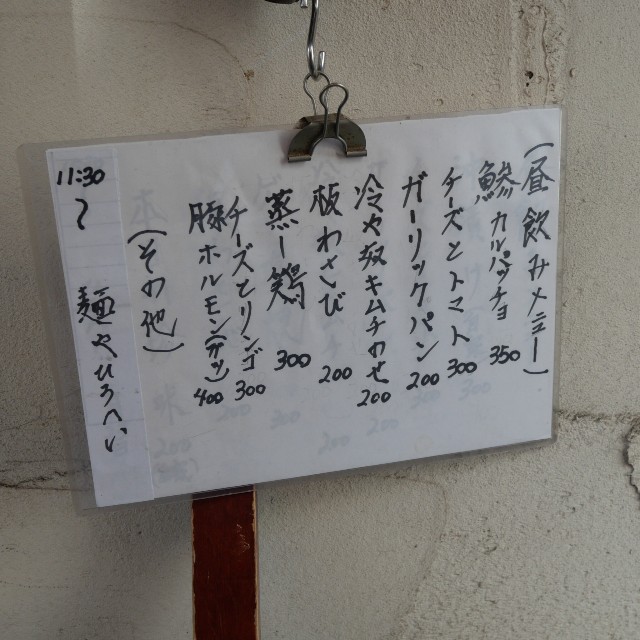 (昼飲みメニュー)
鯵カルパッチョ 350
チーズとトマト 300
ガーリックパン 200
冷や奴キムチのせ 200
板わさび 200
蒸し鶏 300
チーズとリンゴ 300
豚ホルモン(カツ) 400
(その他)
11:30 〜 麺やひろへい